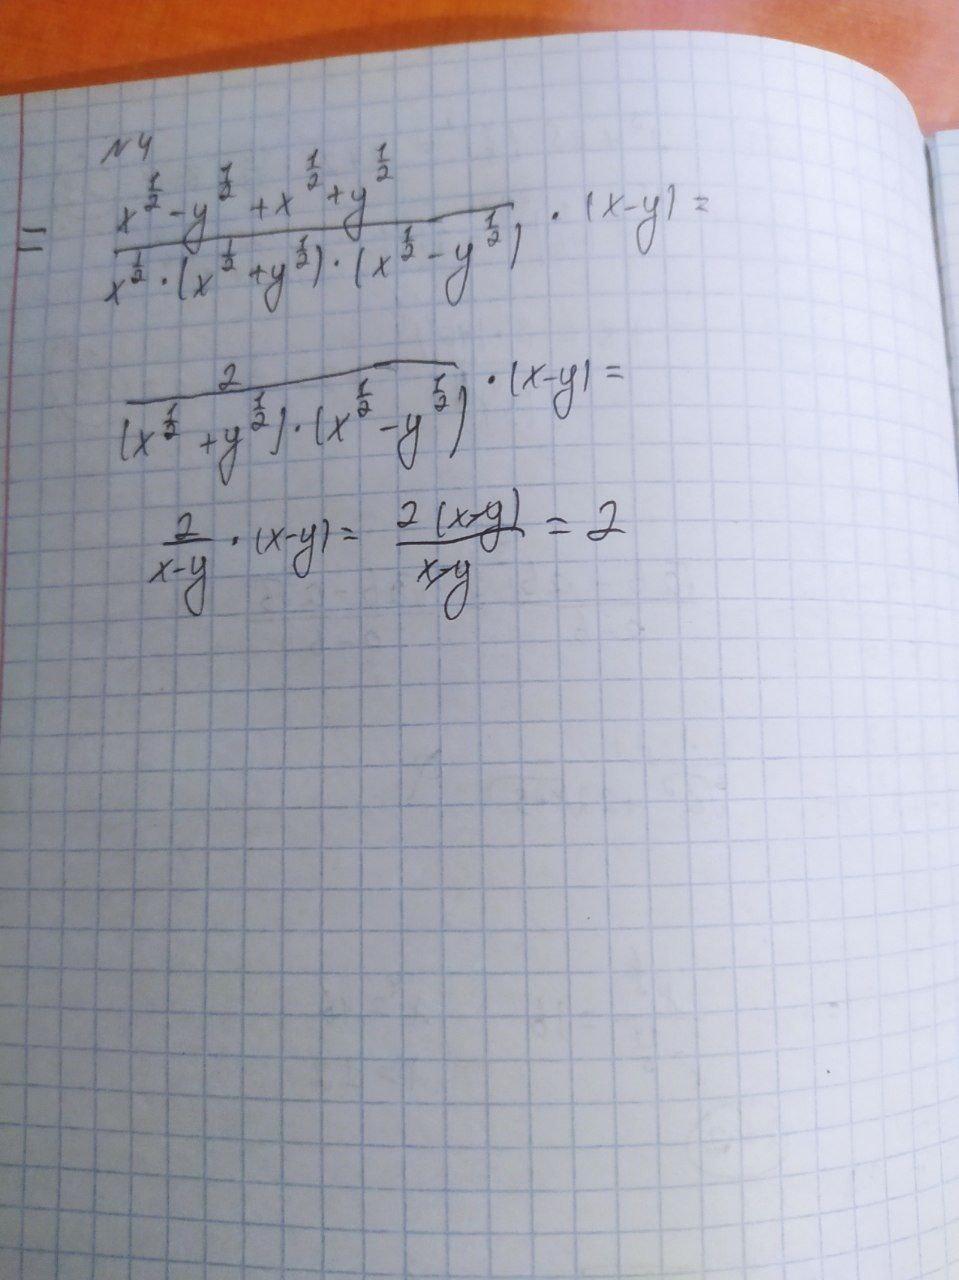 №4
= \frac{x^{\frac{1}{2}} - y^{\frac{1}{2}} + x^{\frac{1}{2}} + y^{\frac{1}{2}}}{x^{\frac{1}{2}} \cdot (x^{\frac{1}{2}} + y^{\frac{1}{2}}) \cdot (x^{\frac{1}{2}} - y^{\frac{1}{2}})} \cdot (x-y) =
\frac{2}{(x^{\frac{1}{2}} + y^{\frac{1}{2}}) \cdot (x^{\frac{1}{2}} - y^{\frac{1}{2}})} \cdot (x-y) =
\frac{2}{x-y} \cdot (x-y) = \frac{2(x-y)}{x-y} = 2